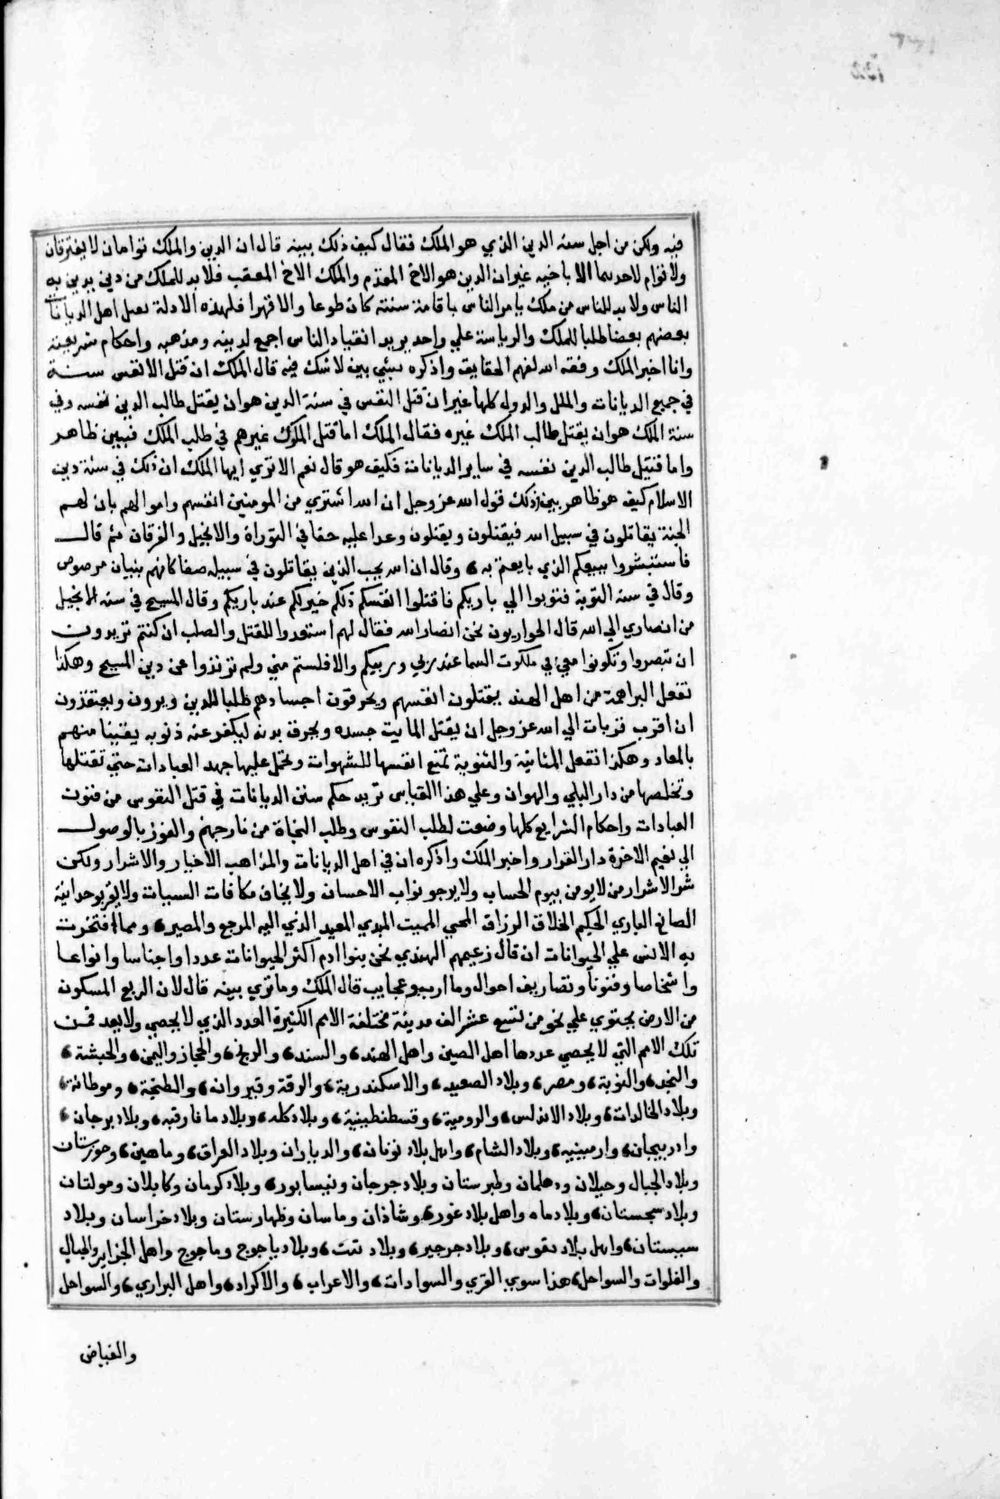 فيه ولكن من اجل سنة الدين الذي هو الملك فقال كيف ذلك بينه قال ان الدين والملك توامان لا يفترقان
ولا قوام لاحدهما الا باخيه غير ان الدين هو الاخ المقدم والملك الاخ المعقب فلا بد للملك من دين يدين به
الناس ولا بد للناس من ملك يامر الناس باقامة سنته كان طوعا والا قهرا فلهذه الادلة يقتل اهل الديانات
بعضهم بعضا طلبا للملك والرياسة علي واحد يريد انقياد الناس اجمع لدينه ومذهبه واحكام شريعته
وانا اخبر الملك وفقه الله لفهم الحقايق واذكره بشي بين لا شك فيه قال الملك ان قتل الانفس سنة
في جميع الديانات والملل والدول كلها غير ان قتل النفس في سنة الدين هو ان يقتل طالب الدين نفسه وفي
سنة الملك هو ان يقتل طالب الملك غيره فقال الملك اما قتل الملوك غيرهم في طلب الملك فبين ظاهر
واما قتيل طالب الدين نفسه في ساير الديانات فكيف هو قال نعم الا تري ايها الملك ان ذلك في سنة دين
الاسلام كيف هو ظاهر بين ذلك قول الله عز وجل ان الله اشتري من المومنين انفسهم واموالهم بان لهم
الجنة يقاتلون في سبيل الله فيقتلون ويقتلون وعدا عليه حقا في التوراة والانجيل والفرقان ثم قال
فاستبشروا ببيعكم الذي بايعتم به، وقال ان الله يحب الذين يقاتلون في سبيله صفا كانهم بنيان مرصوص
وقال في سنة التوبة فتوبوا الي باريكم فاقتلوا انفسكم ذلكم خير لكم عند باريكم وقال المسيح في سنة الانجيل
من انصاري الي الله قال الحواريون نحن انصار الله فقال لهم استعدوا للقتل والصلب ان كنتم تريدون
ان تنصروا وتكونوا معي في ملكوت السما عند ربي وربيكم والا فلستم مني ولم ترتدوا عن دين المسيح وهكذا
تفعل البراهمة من اهل الهند يقتلون انفسهم ويحرقون اجسادهم طلبا للدين ويرون ويعتقدون
ان اقرب قربات الي الله عز وجل ان يقتل المايت جسده ويحرق بدنه ليكفر عنه ذنوبه يقينا منهم
بالمعاد وهكذا تفعل المثانية والثنوية تمنع انفسها للشهوات وتحمل عليها جهد العبادات حتي تقتلها
وتخلصها من دار البلي والهوان وعلي هذا القياس تريد حكم سنن الديانات في قتل النفوس من فنون
العبادات واحكام الشرايع كلها وضعت لطلب النفوس وطلب النجاة من نار جهنم والفوز بالوصول
الي نعيم الاخرة دار القرار واخبر الملك واذكره ان في اهل الديانات والمذاهب الاخيار والاشرار ولكن
شر الاشرار من لا يومن بيوم الحساب ولا يرجو ثواب الاحسان ولا يخاف مكافات السيات ولا يقر بوحدانية
الصانع الباري الحكيم الخلاق الرزاق المحيي المميت المبدي المعيد الذي اليه المرجع والمصير، ومما افتخرت
به الانس علي الحيوانات ان قال زعيمهم الهندي نحن بنوا ادم اكثر الحيوانات عددا واجناسا وانواعا
واشخاصا وفنونا وتصاريف احوال وما ارب وعجايب قال الملك وما تري بينه قال لان الربع المسكون
من الارض يحتوي علي نحو من تسع عشر الف مدينة مختلفة الامم الكثيرة العدد الذي لا يحصي ولا يعد فمن
تلك الامم التي لا يحصي عددها اهل الصين واهل الهند، والسند، والزنج، والحجاز واليمن، والحبشة،
والنجد، والنوبة، ومصر، وبلاد الصعيد، والاسكندرية، والرقة وقيروانه، والطنجة، وموطانة،
وبلاد الخالدات، وبلاد الاندلس، والرومية، وقسطنطينية، وبلاد كله، وبلاد مافارقيه، وبلاد برجان،
وادربيجان، وارمينيه، وبلاد الشام، واهل بلاد نونان، والدياران وبلاد العراق، وماهين، وخوزستان
وبلاد الجبال وجيلان وديلمان وطبرستان وبلاد جرجان ونيسابور، وبلاد كرمان وكابلان ومولتان
وبلاد سجستان، وبلاد ماه واهل بلاد غور، وشاذان وماسان وطهارستان وبلاد خراسان وبلاد
سيستان، واهل بلاد نقوس، وبلاد جرجير، وبلاد تبت، وبلاد ياجوج وماجوج واهل الجزاير والجبال
والفلوات والسواحل، هذا سوي القري والسوادات، والاعراب، والاكراد، واهل البراري، والسواحل
والغياض